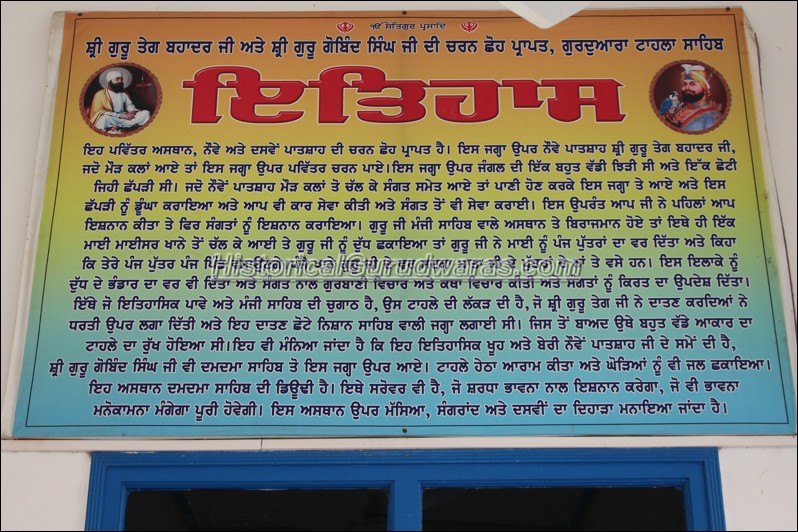 ੴ ਸਤਿਗੁਰ ਪ੍ਰਸਾਦਿ
ਸ਼੍ਰੀ ਗੁਰੂ ਤੇਗ ਬਹਾਦਰ ਜੀ ਅਤੇ ਸ਼੍ਰੀ ਗੁਰੂ ਗੋਬਿੰਦ ਸਿੰਘ ਜੀ ਦੀ ਚਰਨ ਛੋਹ ਪ੍ਰਾਪਤ, ਗੁਰਦੁਆਰਾ ਟਾਹਲਾ ਸਾਹਿਬ
ਇਤਿਹਾਸ
ਇਹ ਪਵਿੱਤਰ ਅਸਥਾਨ, ਨੌਵੇ ਅਤੇ ਦਸਵੇਂ ਪਾਤਸ਼ਾਹ ਦੀ ਚਰਨ ਛੋਹ ਪ੍ਰਾਪਤ ਹੈ। ਇਸ ਜਗ੍ਹਾ ਉਪਰ ਨੌਵੇ ਪਾਤਸ਼ਾਹ ਸ਼੍ਰੀ ਗੁਰੂ ਤੇਗ ਬਹਾਦਰ ਜੀ,
ਜਦੋ ਮੌੜ ਕਲਾਂ ਆਏ ਤਾਂ ਇਸ ਜਗ੍ਹਾ ਉਪਰ ਪਵਿੱਤਰ ਚਰਨ ਪਾਏ।ਇਸ ਜਗ੍ਹਾ ਉਪਰ ਜੰਗਲ ਦੀ ਇੱਕ ਬਹੁਤ ਵੱਡੀ ਝਿੜੀ ਸੀ ਅਤੇ ਇੱਕ ਛੋਟੀ
ਜਿਹੀ ਛੱਪੜੀ ਸੀ। ਜਦੋ ਨੌਵੇਂ ਪਾਤਸ਼ਾਹ ਮੌੜ ਕਲਾਂ ਤੋ ਚੱਲ ਕੇ ਸੰਗਤ ਸਮੇਤ ਆਏ ਤਾਂ ਪਾਣੀ ਹੋਣ ਕਰਕੇ ਇਸ ਜਗ੍ਹਾ ਤੇ ਆਏ ਅਤੇ ਇਸ
ਛੱਪੜੀ ਨੂੰ ਡੂੰਘਾ ਕਰਾਇਆ ਅਤੇ ਆਪ ਵੀ ਕਾਰ ਸੇਵਾ ਕੀਤੀ ਅਤੇ ਸੰਗਤ ਤੋਂ ਵੀ ਸੇਵਾ ਕਰਾਈ। ਇਸ ਉਪਰੰਤ ਆਪ ਜੀ ਨੇ ਪਹਿਲਾਂ ਆਪ
ਇਸ਼ਨਾਨ ਕੀਤਾ ਤੇ ਫਿਰ ਸੰਗਤਾਂ ਨੂੰ ਇਸ਼ਨਾਨ ਕਰਾਇਆ। ਗੁਰੂ ਜੀ ਮੰਜੀ ਸਾਹਿਬ ਵਾਲੇ ਅਸਥਾਨ ਤੇ ਬਿਰਾਜਮਾਨ ਹੋਏ ਤਾਂ ਇਥੇ ਹੀ ਇੱਕ
ਮਾਈ ਮਾਈਸਰ ਖਾਨੇ ਤੋਂ ਚੱਲ ਕੇ ਆਈ ਤੇ ਗੁਰੂ ਜੀ ਨੂੰ ਦੁੱਧ ਛਕਾਇਆ ਤਾਂ ਗੁਰੂ ਜੀ ਨੇ ਮਾਈ ਨੂੰ ਪੰਜ ਪੁੱਤਰਾਂ ਦਾ ਵਰ ਦਿੱਤਾ ਅਤੇ ਕਿਹਾ
ਕਿ ਤੇਰੇ ਪੰਜ ਪੁੱਤਰ ਪੰਜ ਤੇ ਵਸੇ ਹਨ। ਇਸ ਇਲਾਕੇ ਨੂੰ
HistoricalGurudwaras.com
ਦੁੱਧ ਦੇ ਭੰਡਾਰ ਦਾ ਵਰ ਵੀ ਦਿੱਤਾ ਅਤੇ ਸੰਗਤ ਨਾਲ ਗੁਰਬਾਣੀ ਵਿਚਾਰ ਅਤੇ ਕਥਾ ਵਿਚਾਰ ਕੀਤੀ ਅਤੇ ਸੰਗਤਾਂ ਨੂੰ ਕਿਰਤ ਦਾ ਉਪਦੇਸ਼ ਦਿੱਤਾ।
ਇੱਥੇ ਜੋ ਇਤਿਹਾਸਿਕ ਪਾਵੇ ਅਤੇ ਮੰਜੀ ਸਾਹਿਬ ਦੀ ਚੁਗਾਠ ਹੈ, ਉਸ ਟਾਹਲੇ ਦੀ ਲੱਕੜ ਦੀ ਹੈ, ਜੋ ਸ਼੍ਰੀ ਗੁਰੂ ਤੇਗ ਜੀ ਨੇ ਦਾਤਣ ਕਰਦਿਆਂ ਨੇ
ਧਰਤੀ ਉਪਰ ਲਗਾ ਦਿੱਤੀ ਅਤੇ ਇਹ ਦਾਤਣ ਛੋਟੇ ਨਿਸ਼ਾਨ ਸਾਹਿਬ ਵਾਲੀ ਜਗ੍ਹਾ ਲਗਾਈ ਸੀ। ਜਿਸ ਤੋਂ ਬਾਅਦ ਉਥੇ ਬਹੁਤ ਵੱਡੇ ਆਕਾਰ ਦਾ
ਟਾਹਲੇ ਦਾ ਰੁੱਖ ਹੋਇਆ ਸੀ।ਇਹ ਵੀ ਮੰਨਿਆ ਜਾਂਦਾ ਹੈ ਕਿ ਇਹ ਇਤਿਹਾਸਿਕ ਖੂਹ ਅਤੇ ਬੇਰੀ ਨੌਵੇਂ ਪਾਤਸ਼ਾਹ ਜੀ ਦੇ ਸਮੇਂ ਦੀ ਹੈ,
ਸ਼੍ਰੀ ਗੁਰੂ ਗੋਬਿੰਦ ਸਿੰਘ ਜੀ ਵੀ ਦਮਦਮਾ ਸਾਹਿਬ ਤੋ ਇਸ ਜਗ੍ਹਾ ਉਪਰ ਆਏ। ਟਾਹਲੇ ਹੇਠਾ ਆਰਾਮ ਕੀਤਾ ਅਤੇ ਘੋੜਿਆਂ ਨੂੰ ਵੀ ਜਲ ਛਕਾਇਆ।
ਇਹ ਅਸਥਾਨ ਦਮਦਮਾ ਸਾਹਿਬ ਦੀ ਡਿਊਢੀ ਹੈ। ਇਥੇ ਸਰੋਵਰ ਵੀ ਹੈ, ਜੋ ਸ਼ਰਧਾ ਭਾਵਨਾ ਨਾਲ ਇਸ਼ਨਾਨ ਕਰੇਗਾ, ਜੋ ਵੀ ਭਾਵਨਾ
ਮਨੋਕਾਮਨਾ ਮੰਗੇਗਾ ਪੂਰੀ ਹੋਵੇਗੀ। ਇਸ ਅਸਥਾਨ ਉਪਰ ਮੱਸਿਆ, ਸੰਗਰਾਂਦ ਅਤੇ ਦਸਵੀਂ ਦਾ ਦਿਹਾੜਾ ਮਨਾਇਆ ਜਾਂਦਾ ਹੈ।